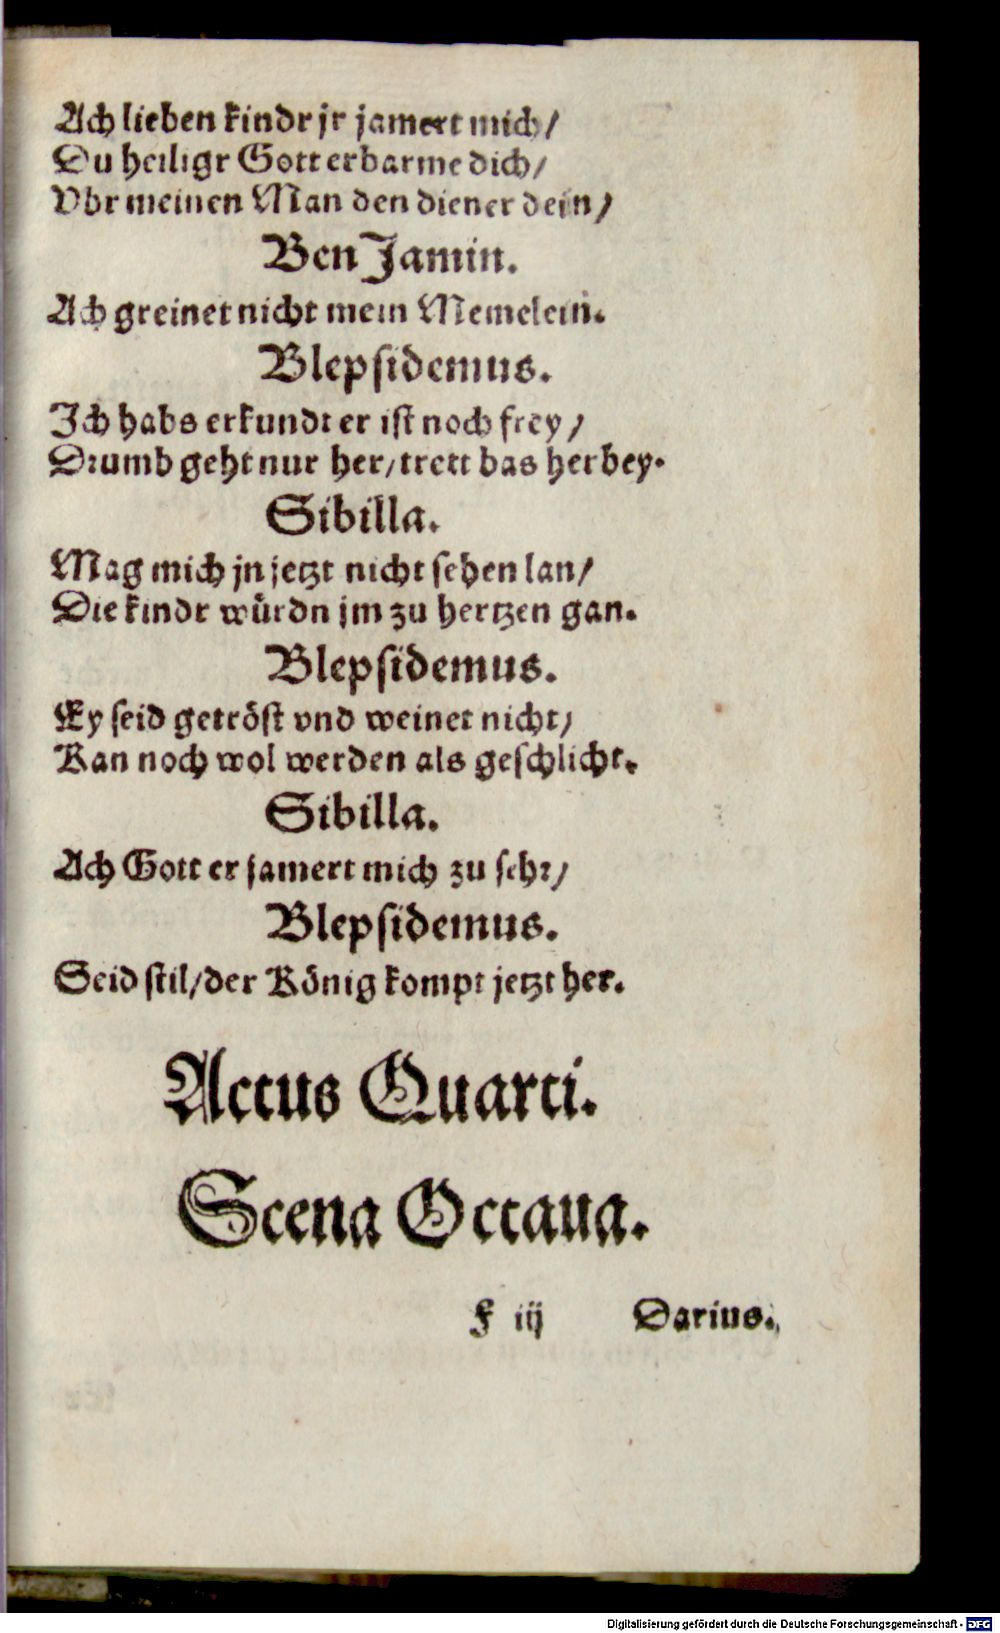 Ach lieben kindr jr jamert mich/
Du heiligr Gott erbarme dich/
Vbr meinen Man den diener dein/
Ben Jamin.
Ach greinet nicht mein Memelein.
Blepsidemus.
Ich habs erkundt er ist noch frey/
Drumb geht nur her/trett bas herbey.
Sibilla.
Mag mich jn jetzt nicht sehen lan/
Die kindr würdn jm zu hertzen gan.
Blepsidemus.
Ey seid getröst vnd weinet nicht/
Kan noch wol werden als geschlicht.
Sibilla.
Ach Gott er jamert mich zu sehr/
Blepsidemus.
Seid stil/der König kompt jetzt her.
Actus Quarti.
Scena Octaua.
F iij Darius.
Digitalisierung gefördert durch die Deutsche Forschungsgemeinschaft - DFG